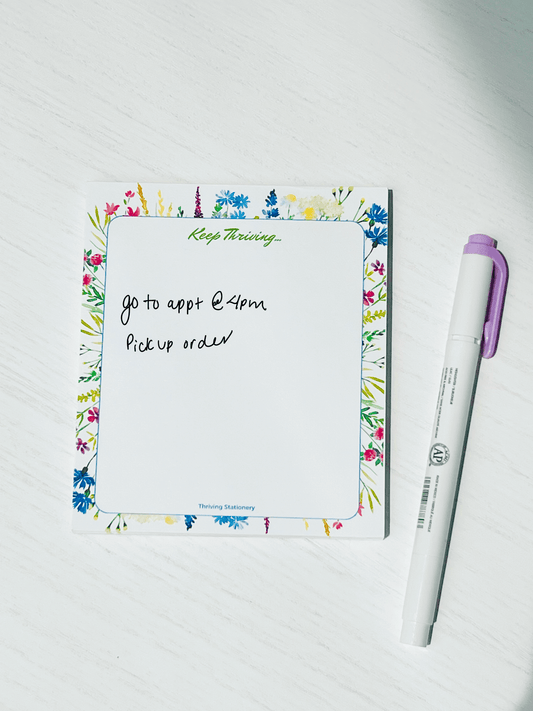 Keep Thriving...
go to appt @ 4pm
Pick up order
Thriving Stationery
AP